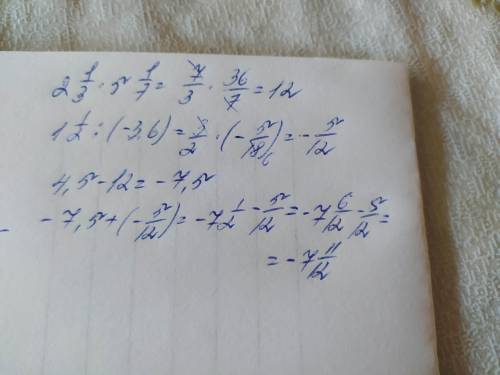 2 1/3 · 5 1/7 = 7/3 · 36/7 = 12
1 1/2 : (-3,6) = 3/2 · (-5/18 6) = -5/12
4,5 - 12 = -7,5
-7,5 + (-5/12) = -7 1/2 - 5/12 = -7 6/12 - 5/12 =
= -7 11/12